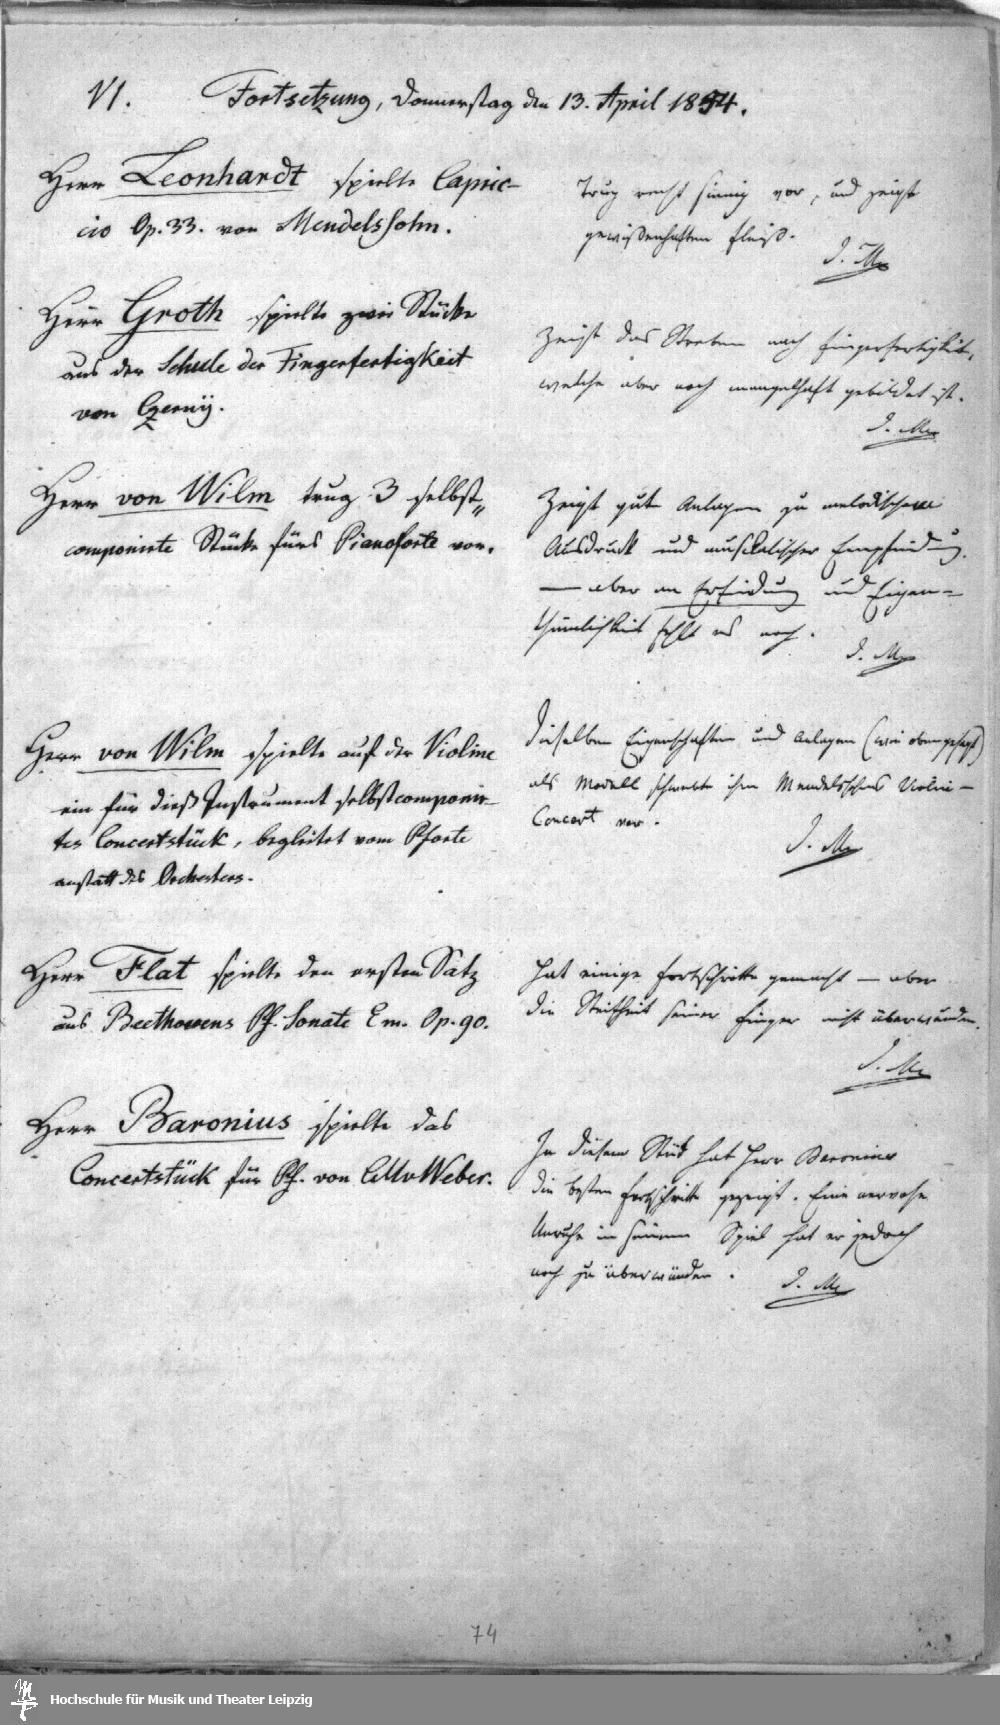 VI. Fortsetzung, Donnerstag den 13. April 1854.
Herr Leonhardt spielte Capric-
cio Op. 33. von Mendelssohn.
Trug recht sinnig vor, und zeigt
gewissenhaften Fleiß.
I. M.
Herr Groth spielte zwei Stücke
aus der Schule der Fingerfertigkeit
von Czerny.
Zeigt das Streben nach Fingerfertigkeit,
welche aber noch mangelhaft gebildet ist.
I. M.
Herr von Wilm trug 3 selbst-
componirte Stücke fürs Pianoforte vor.
Zeigt gute Anlagen zu melodischem
Ausdruck und musikalischer Empfindung.
— aber an Erfindung und Eigen-
thümlichkeit fehlt es noch.
I. M.
Herr von Wilm spielte auf der Violine
ein für dieß Instrument selbstcomponir-
tes Concertstück, begleitet vom Pforte
anstatt des Orchesters.
Dieselben Eigenschaften und Anlagen (wie oben gesagt)
als Modell schwebte ihm Mendelssohns Violin-
Concert vor.
I. M.
Herr Flat spielte den ersten Satz
aus Beethovens Pf. Sonate Em. Op. 90.
Hat einige Fortschritte gemacht — aber
die Steifheit seiner Finger nicht überwunden.
I. M.
Herr Baronius spielte das
Concertstück für Pf. von CMvWeber.
In diesem Stück hat Herr Baronius
die besten Fortschritte gezeigt. Eine nervose
Unruhe in seinem Spiel hat er jedoch
noch zu überwinden.
I. M.
74
Hochschule für Musik und Theater Leipzig